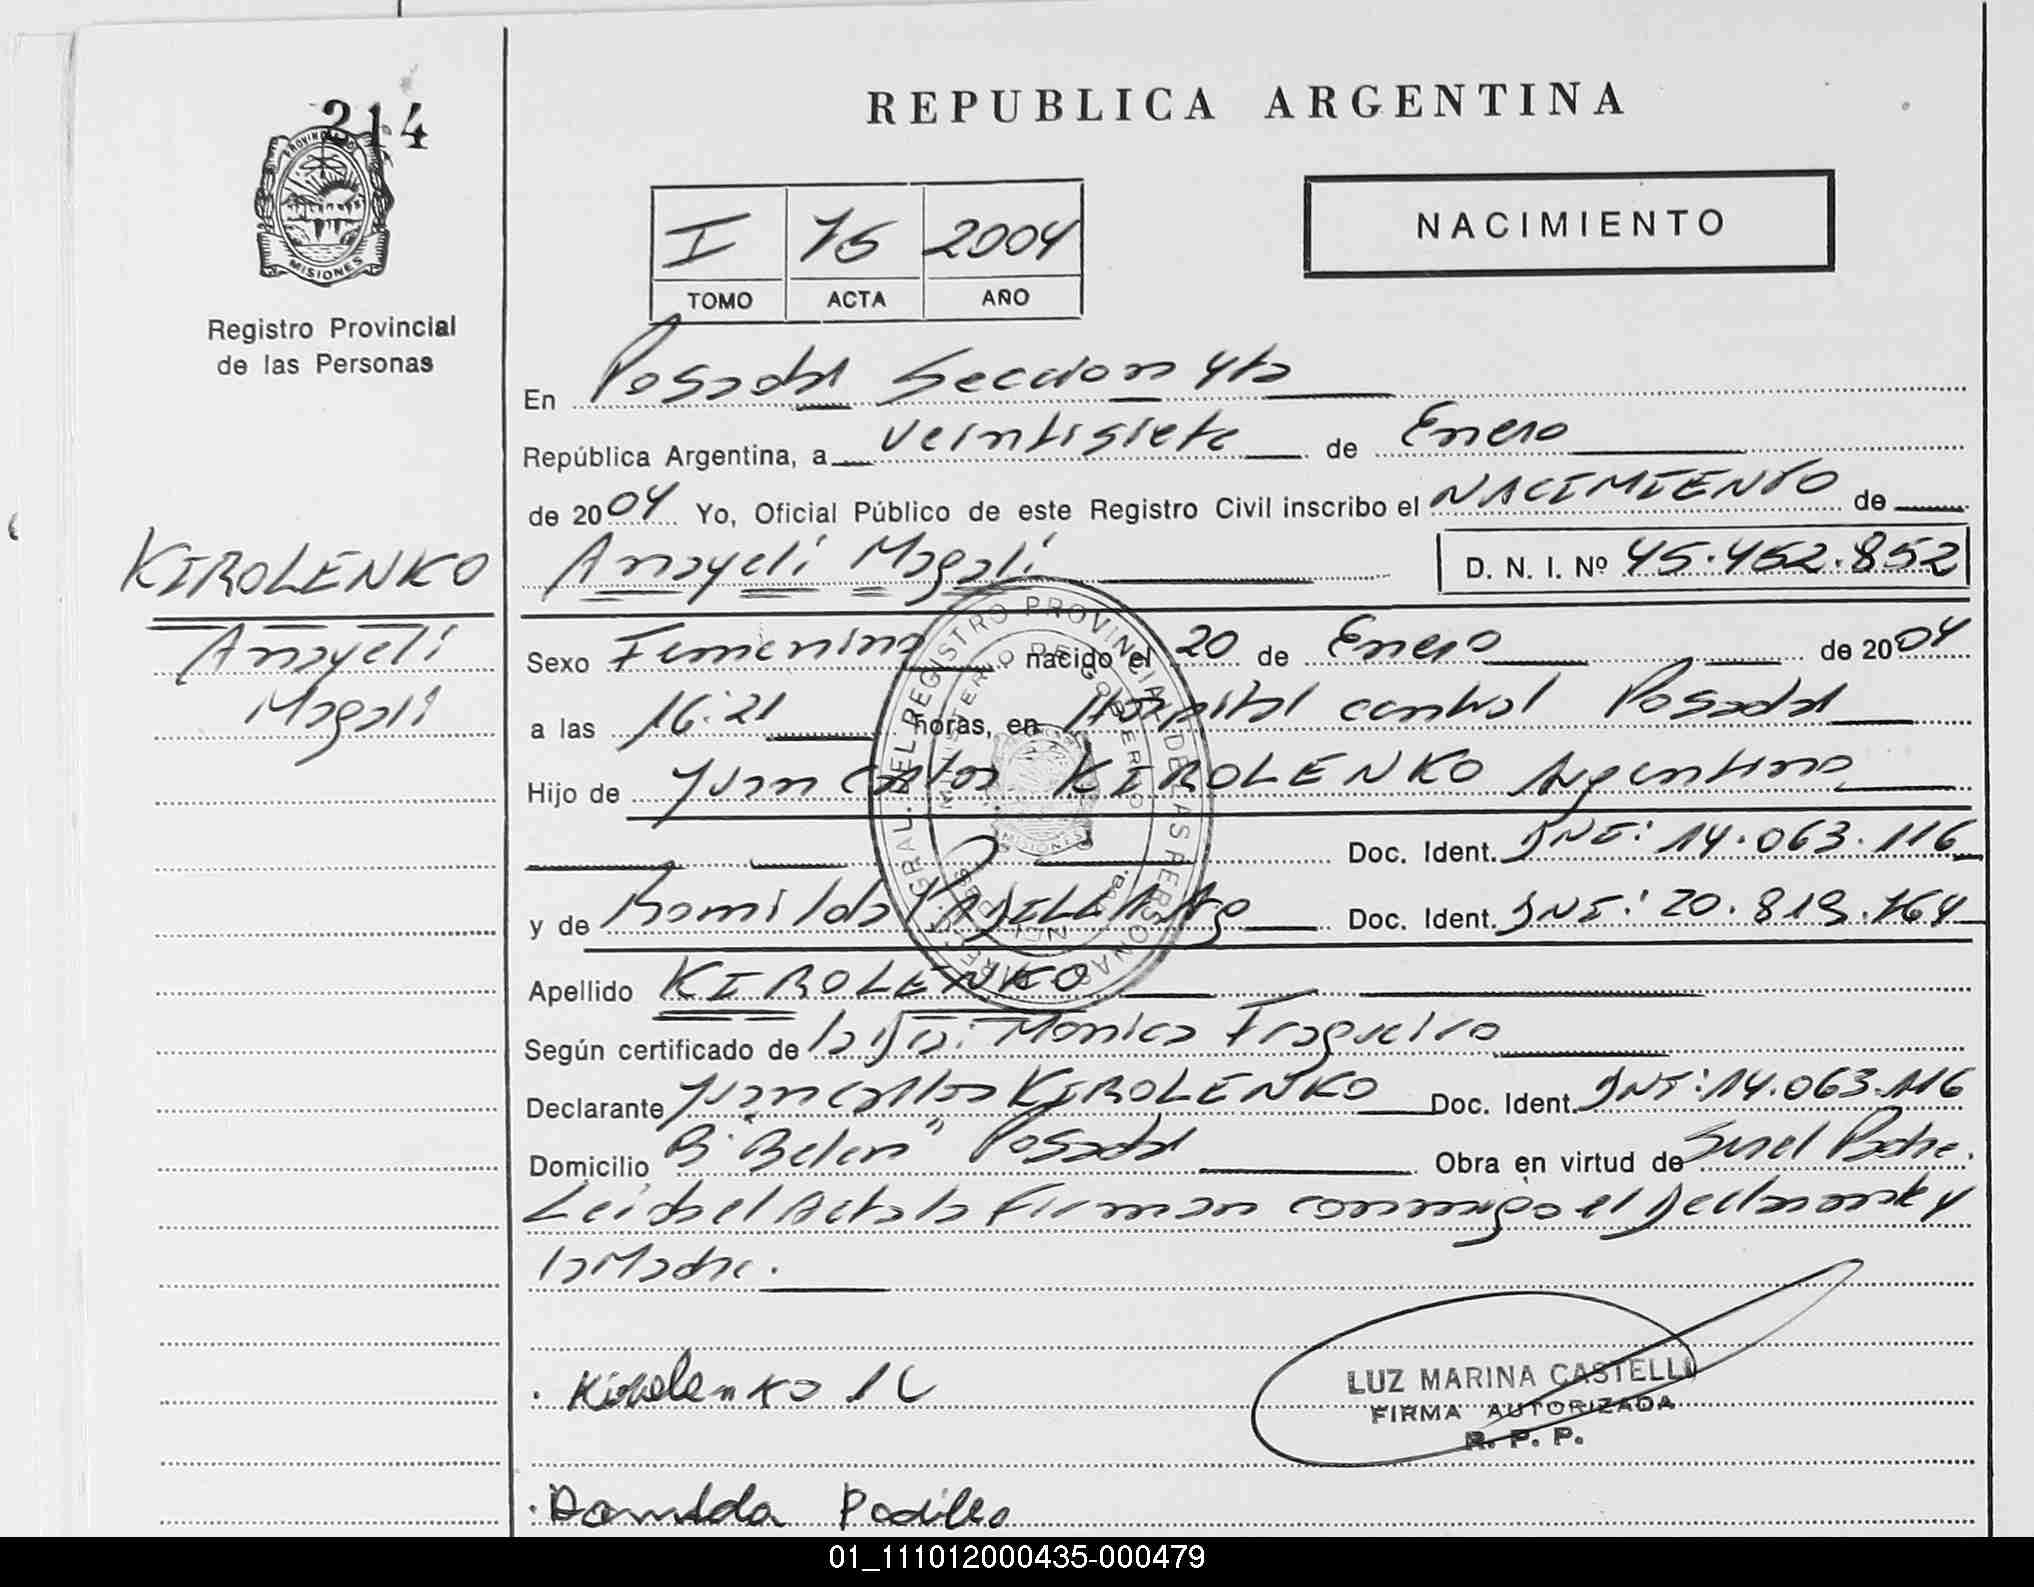 214
PROVINCIA DE
MISIONES
Registro Provincial
de las Personas
REPUBLICA ARGENTINA
I 75 2004
TOMO ACTA AÑO
NACIMIENTO
En Posadas Seccion 4ta
República Argentina, a veintisiete de Enero
de 2004 Yo, Oficial Público de este Registro Civil inscribo el NACIMIENTO de
Anayeli Magali D. N. I. Nº 45.452.852
KIROLENKO
Anayeli
Magali
Sexo Femenino nacido el 20 de Enero de 2004
a las 16:21 horas, en Hospital central Posadas
Hijo de Juan Carlos KIROLENKO Argentino
Doc. Ident. DNI: 14.063.116
y de Romilda PADILLA Arg Doc. Ident. DNI: 20.819.764
Apellido KIROLENKO
Según certificado de la Dra: Monica Fragueiro
Declarante Juan Carlos KIROLENKO Doc. Ident. DNI: 14.063.116
Domicilio B "Belen" Posadas Obra en virtud de Ser el Padre.
Leida el Acta la Firman conmigo el Declarante y
la Madre.
Kirolenko J C
LUZ MARINA CASTELLI
FIRMA AUTORIZADA
R. P. P.
Romilda Padilla
REGISTRO PROVINCIAL DE LAS PERSONAS
MINISTERIO DE GOBIERNO
01_111012000435-000479